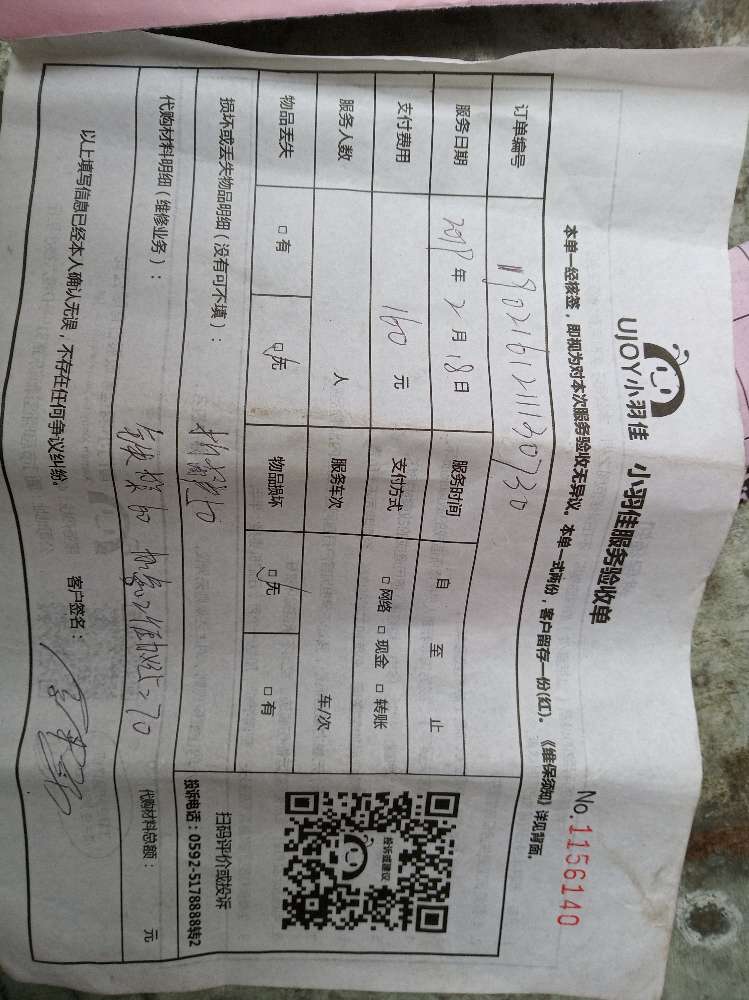 UJOY小羽佳 小羽佳服务验收单
No.1156140
本单一经核签，即视为对本次服务验收无异议。本单一式两份，客户留存一份(红)。《维保须知》详见背面。
订单编号
服务日期 年 2 月 18 日 服务时间 自 至 止
支付费用 160 元 支付方式 □ 网络 □ 现金 □ 转账
服务人数 人 服务车次 车/次
物品丢失 □ 有 □ 无 物品损坏 □ 无 □ 有
损坏或丢失物品明细（没有可不填）：
代购材料明细（维修业务）：
代购材料总额： 元
以上填写信息已经本人确认无误，不存在任何争议纠纷。 客户签名：
投诉或建议
扫码评价或投诉
投诉电话：0592-5178888转2